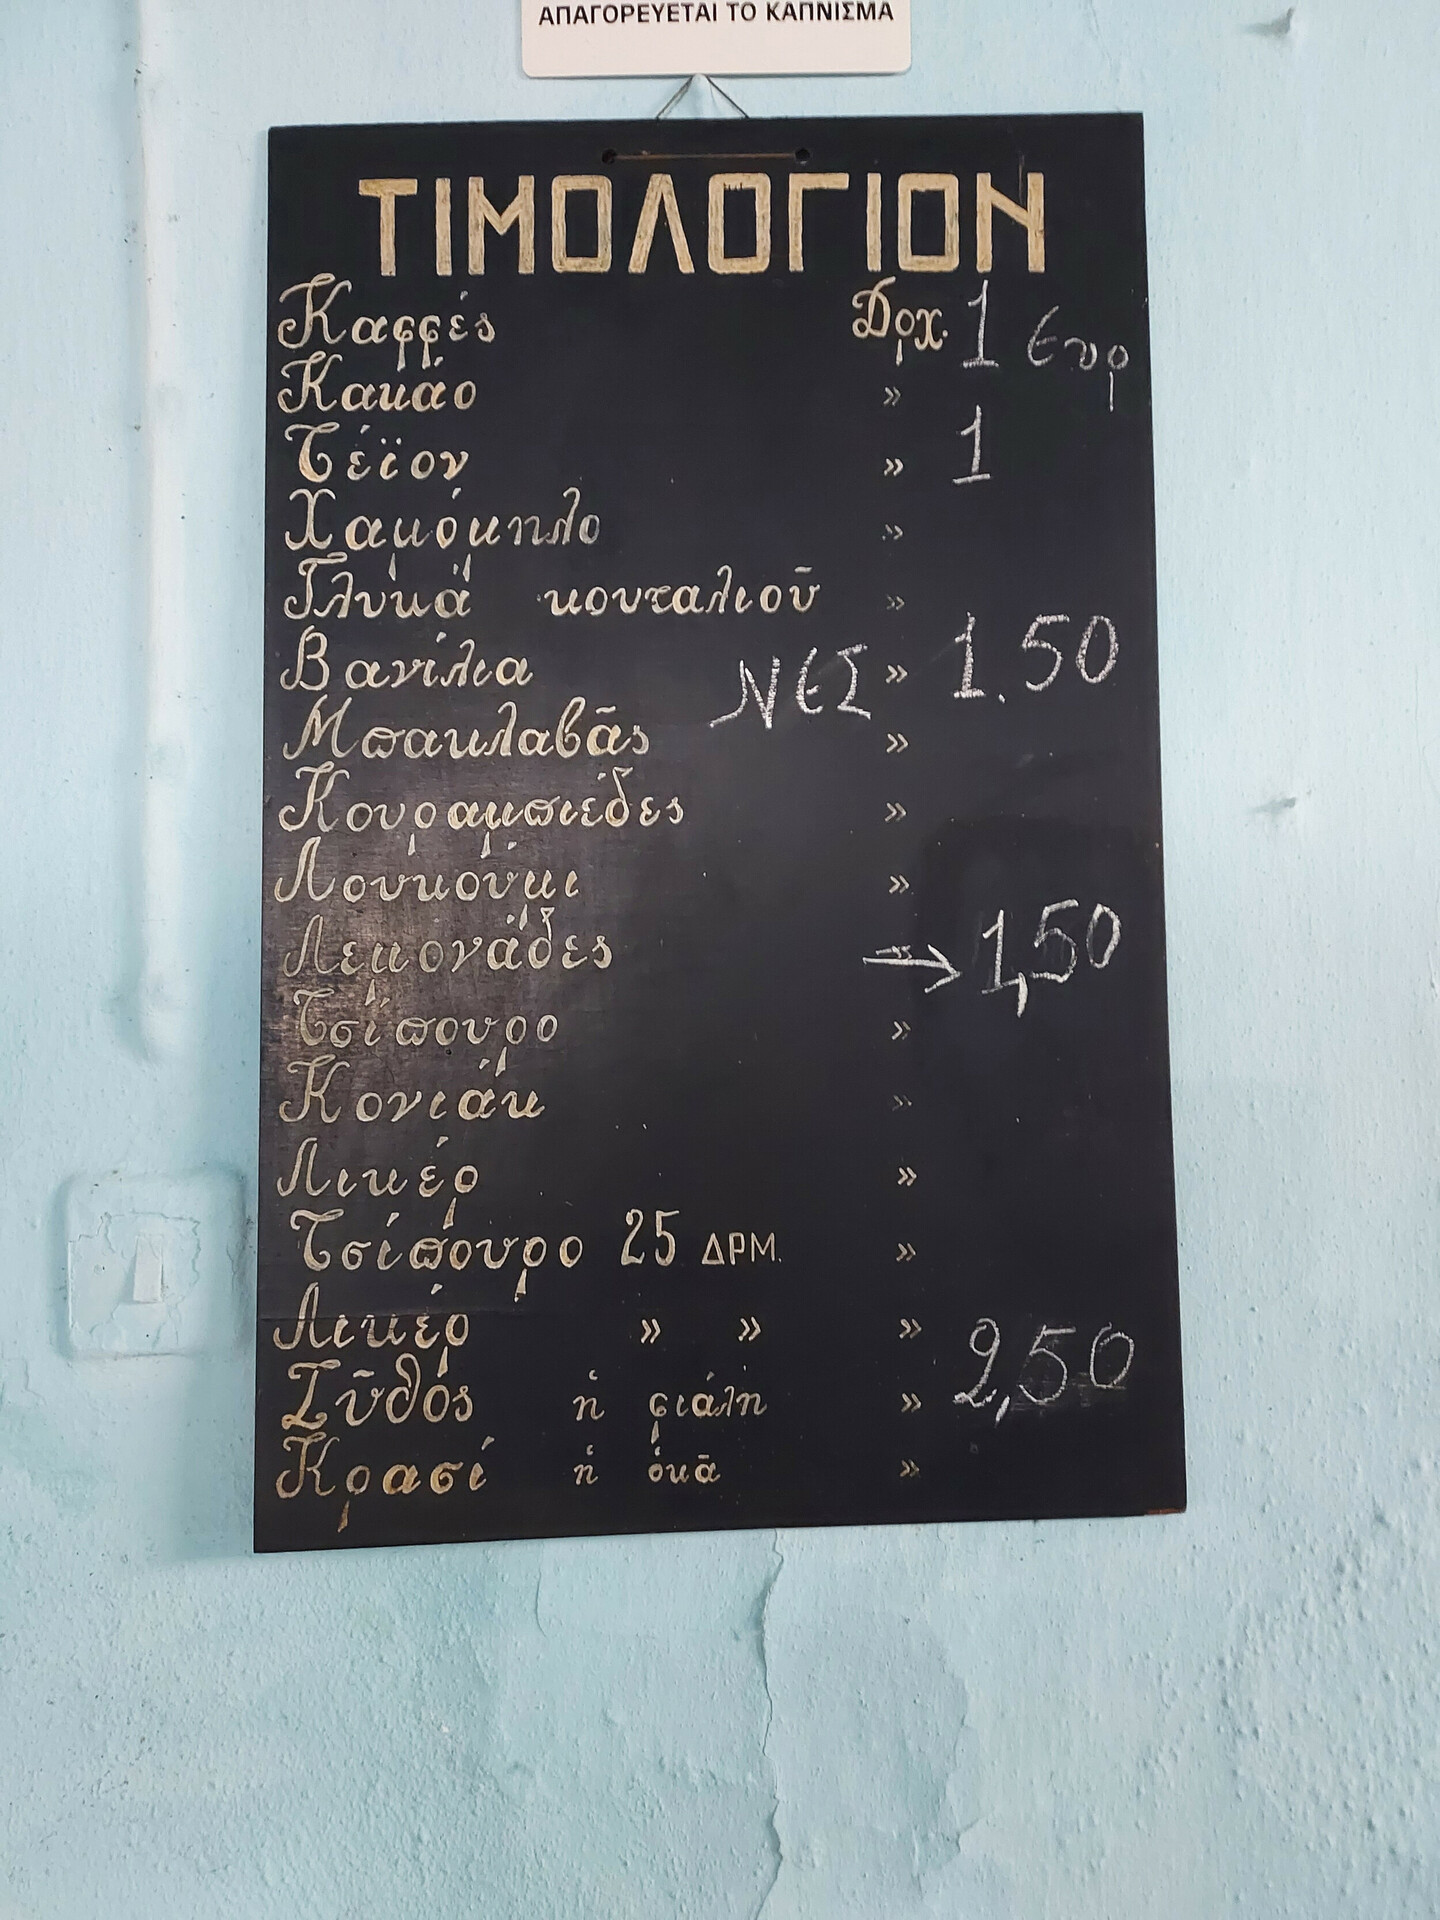 ΑΠΑΓΟΡΕΥΕΤΑΙ ΤΟ ΚΑΠΝΙΣΜΑ
ΤΙΜΟΛΟΓΙΟΝ
Καφφές Δρχ. 1 Ευρ
Κακάο »
Τέϊον » 1
Χαμόμηλο »
Γλυκά κουταλιοῦ »
Βανίλια ΝΕΣ » 1.50
Μπακλαβᾶς »
Κουραμπιέδες »
Λουκούμι »
Λεμονάδες » → 1,50
Τσίπουρο »
Κονιάκ »
Λικέρ »
Τσίπουρο 25 ΔΡΜ. »
Λικέρ » » »
Ζῦθός ἡ φιάλη » 2,50
Κρασί ἡ ὀκᾶ »